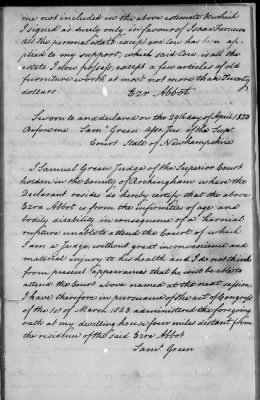 me not included in the above estimate & which
I signed as surety only in favour of Isaac
all the personal estate except one Cow has been ap-
plied to my support, which said Cow is all the
estate I now possess, except a few articles of old
furniture worth at most not more than Twenty
dollars
Ezr Abbot
Sworn to and declared on the 29th day of April 1823
Before me Saml Green Asso. Jus. of the Supr
Court State of Newhampshire
I Samuel Green Judge of the Superior Court
holden in the County of Rockingham where the
Declarant resides do hereby certify that the above
Ezra Abbot is from the infirmities of age and
bodily disability in consequence of a hernial
rupture unable to attend the Court of which
I am a Judge without great inconvenience and
material injury to his health and I do not think
from present appearances that he will be able to
attend the Court above named at the next session
I have therefore in pursuance of the act of Congress
of the 1st of March 1823 administered the foregoing
oath at my dwelling house four miles distant from
the residence of the said Ezra Abbot
Saml Green